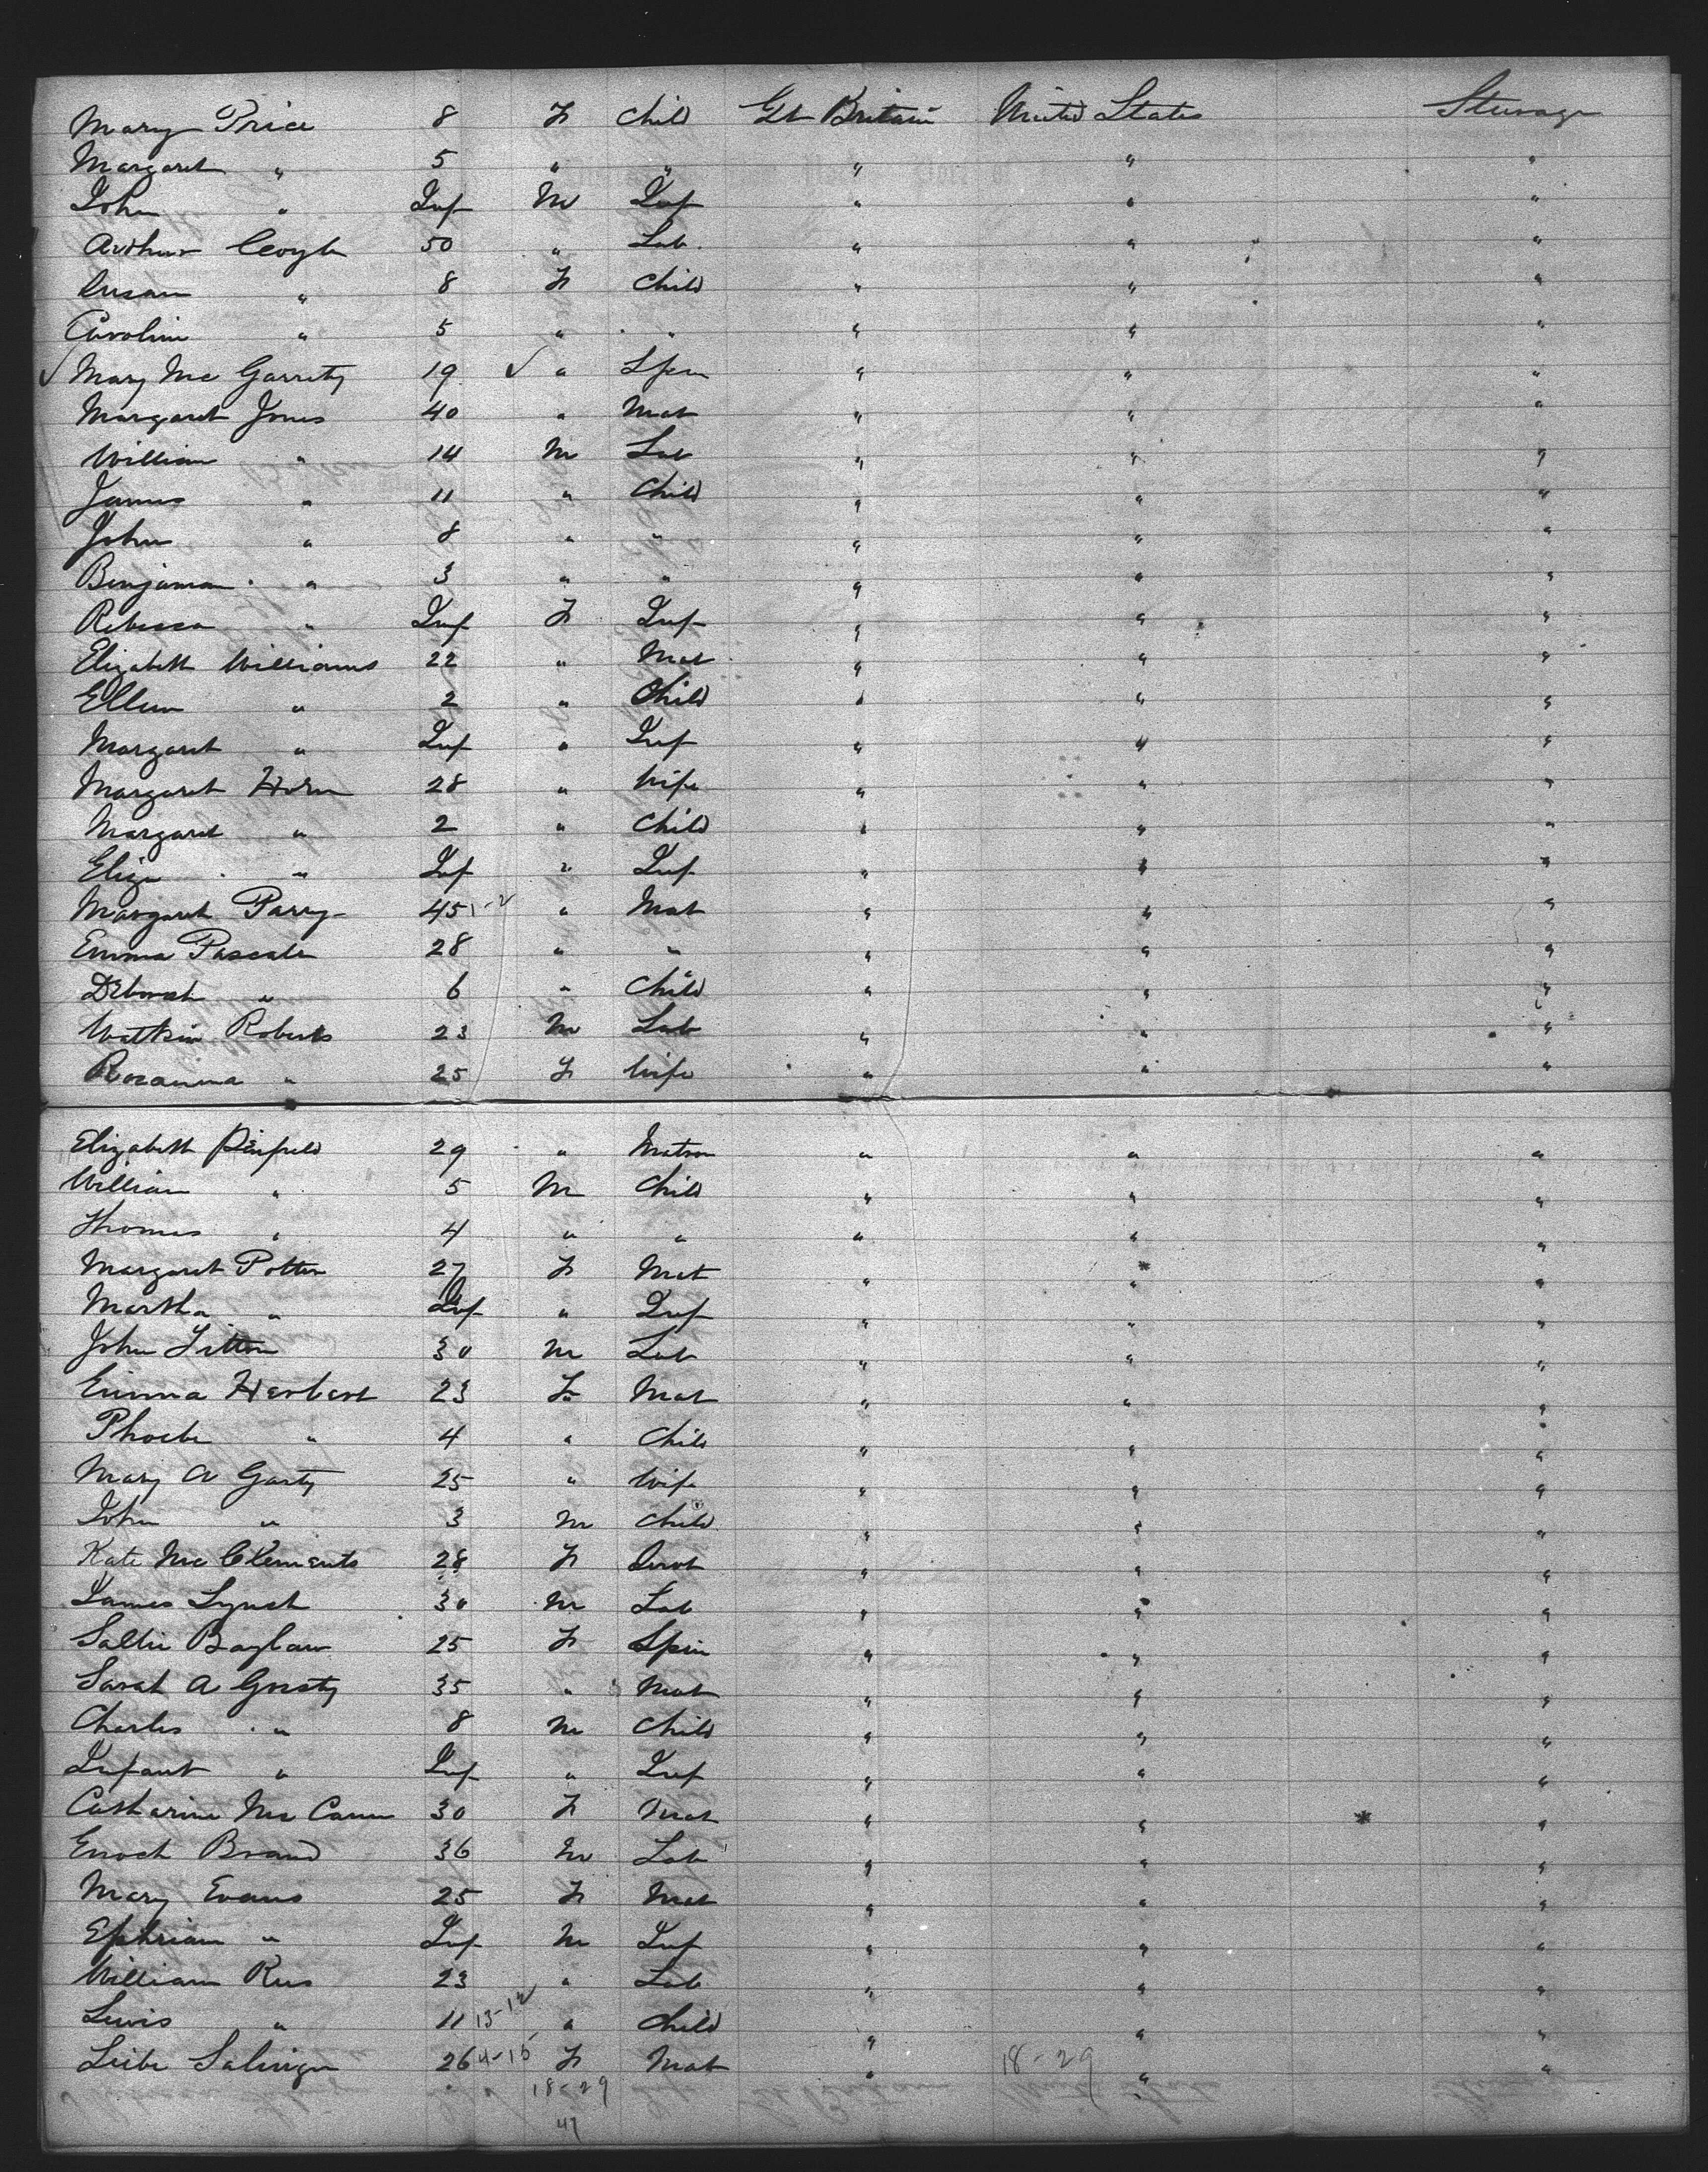 Mary Price 8 F Child Gt Britain United States Steerage
Margaret " 5 " " " " "
John " Inf M Inf " " "
Arthur 50 " Lab. " " "
Susan " 8 F Child " " "
Caroline " 5 " " " " "
✓ Mary Mc Garrity 19 ✓ " Spin " " "
Margaret Jones 40 " Mat " " "
William " 14 M Lab " " "
James " 11 " Child " " "
John " 8 " " " " "
Benjaman " 3 " " " " "
Rebecca " Inf F Inf " " "
Elizabeth Williams 22 " Mat " " "
Ellen " 2 " Child " " "
Margaret " Inf " Inf " " "
Margaret Horn 28 " Wife " " "
Margaret " 2 " Child " " "
Eliza " Inf " Inf " " "
Margaret Parry 45 " Mat " " "
Emma Pascale 28 " " " " "
Deborah " 6 " Child " " "
Watkin Roberts 23 M Lab " " "
Rosanna " 25 F Wife " " "
Elizabeth Penfield 29 " Matron " " "
William " 5 M Child " " "
Thomas " 4 " " " " "
Margaret Potter 27 F Mat " " "
Martha " Inf " Inf " " "
John Fitton 30 M Lab " " "
Emma Herbert 23 F Mat " " "
Phoebe " 4 " Child " " "
Mary A Garty 25 " Wife " " "
John " 3 M Child " " "
Kate Mc Clements 28 F Servt " " "
James Lynch 30 M Lab " " "
Sallie Boylan 25 F Spin " " "
Sarah A 35 " Mat " " "
Charles " 8 M Child " " "
Infant " Inf " Inf " " "
Catharine Mc Cann 30 F Mat " " "
Enoch Brand 36 M Lab " " "
Mary Evans 25 F Mat " " "
Ephriam " Inf M Inf " " "
William Rees 23 " Lab " " "
Lewis " 11 13-12 " Child " " "
Leibe Salinger 26 4-15 F Mat " 18-29 " "
18-29
47